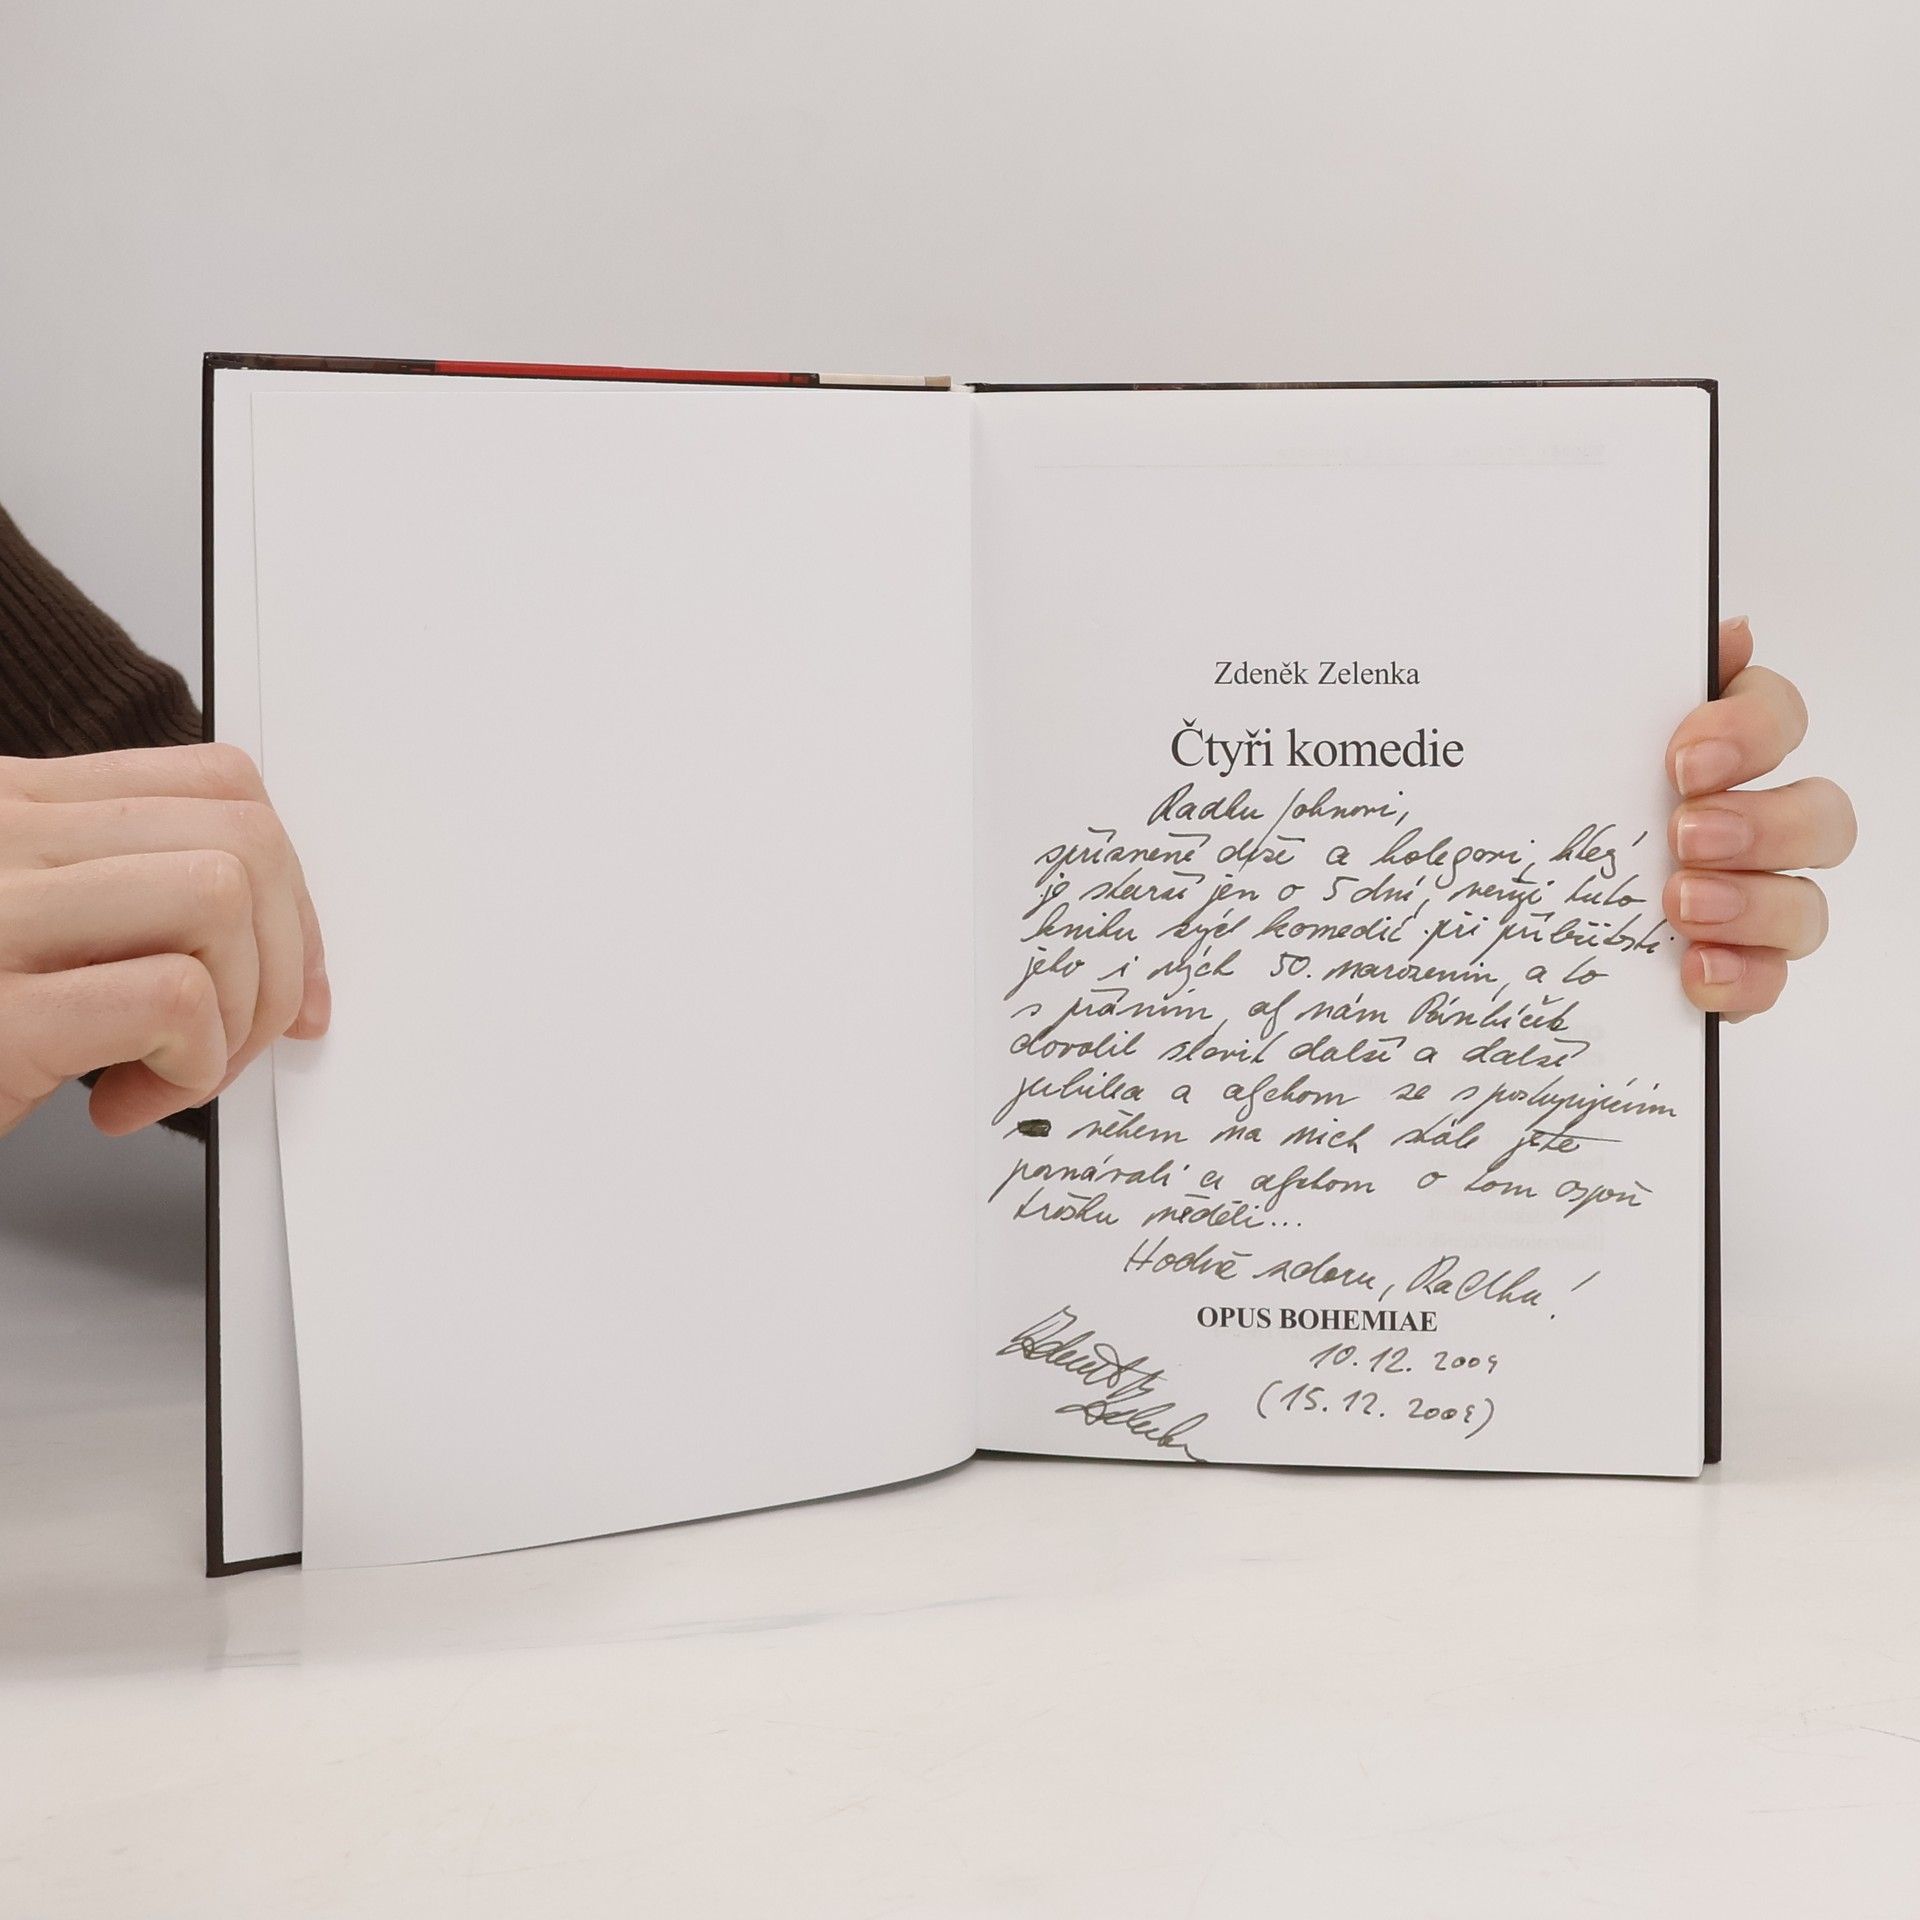 Zdeněk Zelenka
Čtyři komedie
Radku Johnovi,
spřízněné duši a kolegovi, který
je starší jen o 5 dní, věnuji tuto
knihu mých komedií při příležitosti
jeho i mých 50. narozenin, a to
s přáním, ať nám Pánbíček
dovolil slavit další a další
jubilea a abychom se s postupujícím
věkem na nich stále ještě
poznávali a abychom o tom aspoň
trošku věděli...
Hodně zdaru, Radku!
OPUS BOHEMIAE
10.12.2004
(15.12.2004)
Zdeněk
Zelenka